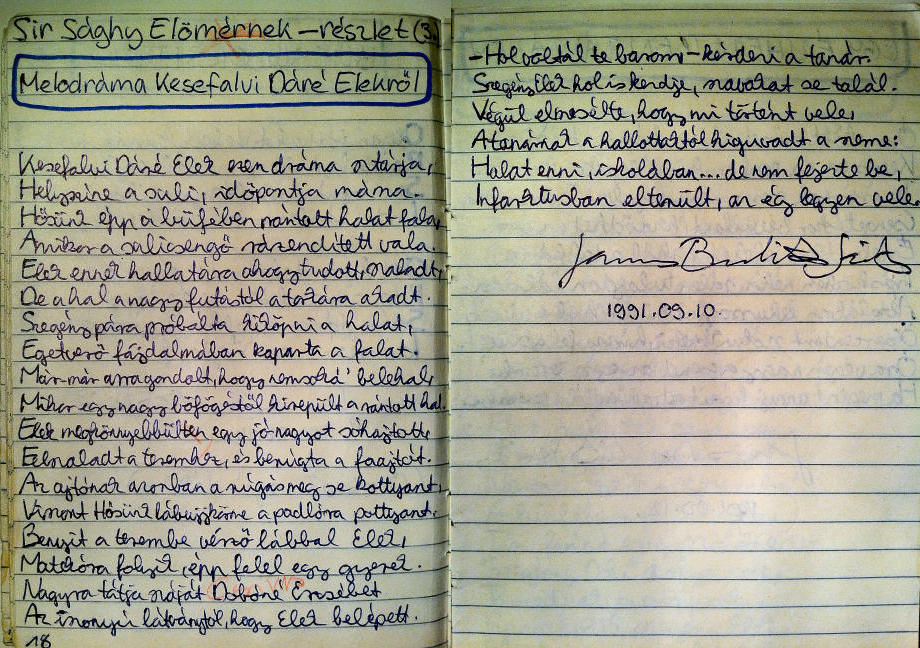 Sir Sághy Előmérnek – részlet (3.)
Melodráma Kesefalvi Dáré Elekről
Kesefalvi Dáré Elek ezen dráma sztárja,
Helyszíne a suli, időpontja máma.
Hősünk épp a büfében rántott halat fala,
Amikor a sulicsengő rázendített vala.
Elek ennek hallatára ahogy tudott, szaladt,
De a hal a nagy futástól a torkára akadt.
Szegény pára próbálta kiköpni a halat,
Égetverő fájdalmában kaparta a falat.
Már-már arra gondolt, hogy nemsoká' belehal,
Mikor egy nagy böfögéstől kirepült a rántott hal.
Elek megkönnyebbülten egy jó nagyot sóhajtott,
Felszaladt a teremhez, és berúgta a faajtót.
Az ajtónak azonban a rúgás meg se kottyant,
Viszont Hősünk lábujjkörme a padlóra pottyant.
Benyit a terembe vérző lábbal Elek,
Matekóra folyik, épp felel egy gyerek.
Nagyra tátja száját Dobóné Erzsébet
Az iszonyú látványtól, hogy Elek belépett.
18
– Hol voltál te barom – kérdezi a tanár.
Szegény Elek hol is kezdje, szavakat se talál.
Végül elmesélte, hogy mi történt vele,
A tanárnak a hallottaktól kiguvadt a szeme:
Halat enni, iskolában... de nem fejezte be,
Infarktusban elterült, az ég legyen vele.
1991.09.10.